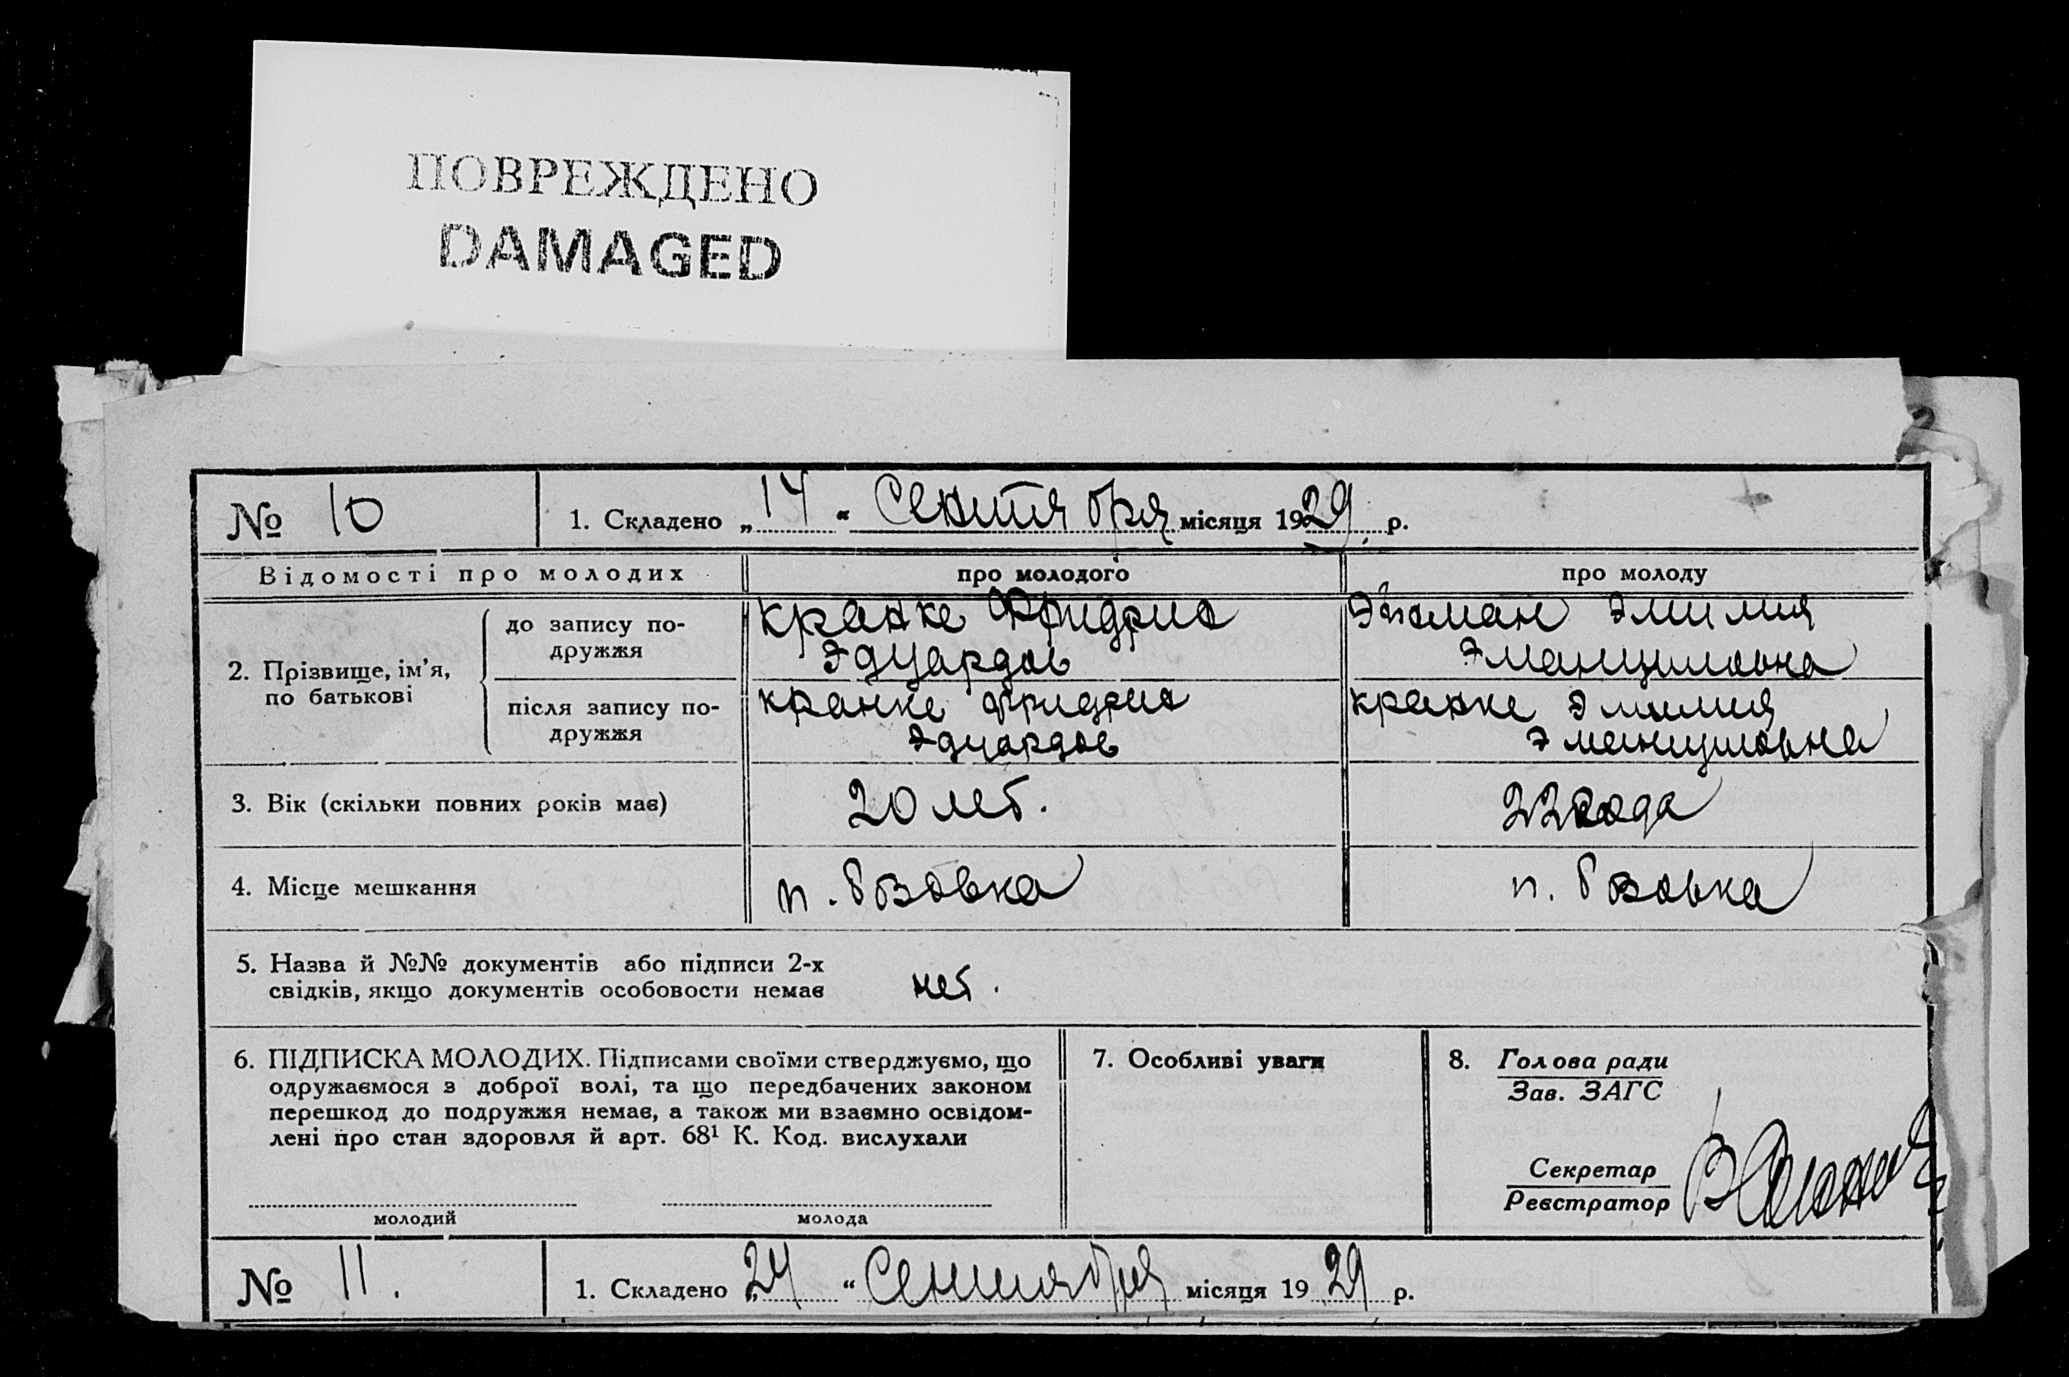 ПОВРЕЖДЕНО
DAMAGED
№ 10
1. Складено „ 14 “ Сентября місяця 1929 р.
Відомості про молодих
про молодого
про молоду
2. Прізвище, ім’я, по батькові
до запису подружжя
Кранке Фридрих
Эдуардов
Эмилия
Эмануиловна
після запису подружжя
Кранке Фридрих
Эдуардов
Кранке Эмилия
Эмануиловна
3. Вік (скільки повних років має)
20 лет.
22 года
4. Місце мешкання
п.
п.
5. Назва й №№ документів або підписи 2-х
свідків, якщо документів особовости немає
нет.
6. ПІДПИСКА МОЛОДИХ. Підписами своїми стверджуємо, що
одружаємося з доброї волі, та що передбачених законом
перешкод до подружжя немає, а також ми взаємно освідом-
лені про стан здоровля й арт. 68¹ К. Код. вислухали
молодий
молода
7. Особливі уваги
8. Голова ради
Зав. ЗАГС
Секретар
Реєстратор
№ 11.
1. Складено „ 24 “ Сентября місяця 1929 р.